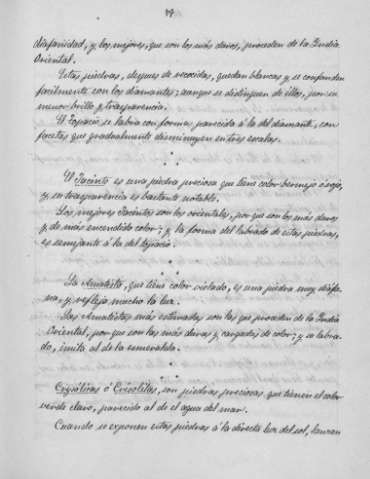 diafanidad, y los mejores, que son los más duros, proceden de la India
Oriental.
Estas piedras, después de recocidas, quedan blancas y se confunden
facilmente con los diamantes; aunque se distinguen de ellos, por su
menor brillo y trasparencia.
El Topacio se labra con forma parecida á la del diamante, con
facetas que gradualmente disminuyen en tres escalas.
El Jacinto es una piedra preciosa que tiene color bermejo ó rojo,
y su trasparencia es bastante notable.
Los mejores Jacintos son los orientales, por que son los más duros
y de más encendido color; y la forma del labrado de estas piedras,
es semejante á la del topacio.
La Amatista, que tiene color violado, es una piedra muy diáfa-
na, y refleja mucho la luz.
Las Amatistas más estimadas son las que proceden de la India
Oriental, por que son las más duras y cargadas de color; y su labra-
do, imita al de la esmeralda.
ó Crisólitas, son piedras preciosas que tienen el color
verde claro, parecido al de el agua del mar.
Cuando se exponen estas piedras á la directa luz del sol, lanzan